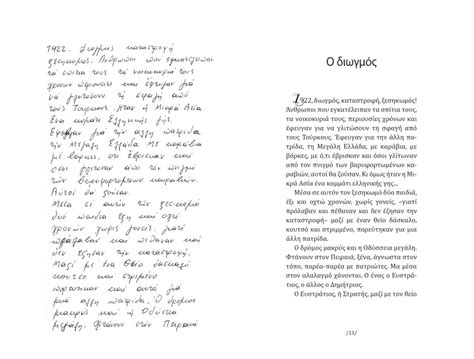 1922. διωγμός καταστροφή
ξεσηκωμός. Άνθρωποι που εγκατέλειπαν
τα σπίτια τους τα νοικοκυριά τους
χρόνων περιουσία και έφυγαν για
να γλιτώσουν τη σφαγή από
τους Τούρκους. Ήταν η Μικρά Ασία
Ένα κομάτι Ελληνικής γής.
Έφυγαν για την αλλη πατρίδα
την Μεγάλη Ελλάδα Με καράβια
με βαρκες, ότι έβρισκαν και
όσοι γλίτωναν από τον πνιγμό
των βαρυφορτωμένων καραβιών.
Αυτοί θα ζούσαν.
Μέσα σε αυτόν τον ξεσηκωμό
δυό παιδιά έξη και οχτώ
χρονών χωρίς γονείς. γιατί
πρόλαβαν και πέθαναν και
δεν έζησαν την καταστροφή.
Μαζί με ένα θείο δάσκαλο
κουτσο και στριμένο
και αυτό για
μιά αλλη πατρίδα. Ο δρόμος
μακρυς και η Οδύσσεια
μεγάλη. Φτάνουν στόν Πειραιά
Ο διωγμός
1922, διωγμός, καταστροφή, ξεσηκωμός!
Άνθρωποι που εγκατέλειπαν τα σπίτια τους,
τα νοικοκυριά τους, περιουσίες χρόνων και
έφευγαν για να γλιτώσουν τη σφαγή από
τους Τούρκους. Έφευγαν για την άλλη πα-
τρίδα, τη Μεγάλη Ελλάδα, με καράβια, με
βάρκες, με ό,τι έβρισκαν και όσοι γλίτωναν
από τον πνιγμό των βαρυφορτωμένων κα-
ραβιών, αυτοί θα ζούσαν. Κι όμως ήταν η Μι-
κρά Ασία ένα κομμάτι ελληνικής γης...
Μέσα σε αυτόν τον ξεσηκωμό δύο παιδιά,
έξι και οχτώ χρονών, χωρίς γονείς, –γιατί
πρόλαβαν και πέθαναν και δεν έζησαν την
καταστροφή– μαζί με έναν θείο δάσκαλο,
κουτσό και στριμμένο, πορεύτηκαν για μια
άλλη πατρίδα.
Ο δρόμος μακρύς και η Οδύσσεια μεγάλη.
Φτάνουν στον Πειραιά, ξένα, άγνωστα στον
τόπο, παρέα-παρέα με πατριώτες. Μα μέσα
στον αλαλαγμό χάνονται. Ο ένας ο Ευστρά-
τιος, ο άλλος ο Δημήτριος.
Ο Ευστράτιος, ή Στρατής, μαζί με τον θείο
/13/